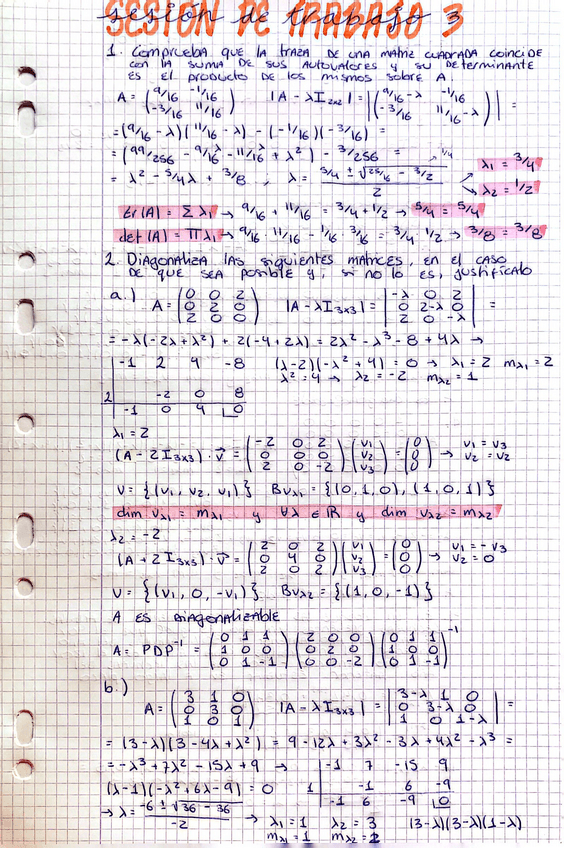 SESIÓN DE TRABAJO 3
1. Comprueba que la traza de una matriz cuadrada coincide
con la suma de sus autovalores y su determinante
es el producto de los mismos sobre A.
A = (9/16 -1/16 / -3/16 11/16) |A - λI2x2| = |(9/16 - λ -1/16 / -3/16 11/16 - λ)| =
= (9/16 - λ)(11/16 - λ) - (-1/16)(-3/16) =
= (99/256 - 9/16 λ - 11/16 λ + λ²) - 3/256 =
= λ² - 5/4 λ + 3/8 ; λ = (5/4 ± √(25/16 - 3/2)) / 2 1/4 λ1 = 3/4 λ2 = 1/2
tr(A) = Σλi → 9/16 + 11/16 = 3/4 + 1/2 → 5/4 = 5/4
det(A) = Πλi → 9/16 · 11/16 - 1/16 · 3/16 = 3/4 · 1/2 → 3/8 = 3/8
2. Diagonaliza las siguientes matrices, en el caso
de que sea posible y, si no lo es, justifícalo
a.)
A = (0 0 2 / 0 2 0 / 2 0 0) |A - λI3x3| = |-λ 0 2 / 0 2-λ 0 / 2 0 -λ| =
= -λ(-2λ + λ²) + 2(-4 + 2λ) = 2λ² - λ³ - 8 + 4λ →
-1 2 4 -8 (λ-2)(-λ² + 4) = 0 → λ1 = 2 mλ1 = 2
λ² = 4 → λ2 = -2 mλ2 = 1
2 -2 0 8
-1 0 4 0
λ1 = 2
(A - 2I3x3) · v = (-2 0 2 / 0 0 0 / 2 0 -2)(v1 / v2 / v3) = (0 / 0 / 0) → v1 = v3 v2 = v2
V = {(v1, v2, v1)} Bvλ1 = {(0, 1, 0), (1, 0, 1)}
dim vλ1 = mλ1 y ∀λ ∈ ℝ y dim vλ2 = mλ2
λ2 = -2
(A + 2I3x3) · v = (2 0 2 / 0 4 0 / 2 0 2)(v1 / v2 / v3) = (0 / 0 / 0) → v1 = -v3 v2 = 0
V = {(v1, 0, -v1)} Bvλ2 = {(1, 0, -1)}
A es diagonalizable
A = PDP⁻¹ = (0 1 1 / 1 0 0 / 0 1 -1)(2 0 0 / 0 2 0 / 0 0 -2)(0 1 1 / 1 0 0 / 0 1 -1)⁻¹
b.)
A = (3 1 0 / 0 3 0 / 1 0 1) |A - λI3x3| = |3-λ 1 0 / 0 3-λ 0 / 1 0 1-λ| =
= (3-λ)(3 - 4λ + λ²) = 9 - 12λ + 3λ² - 3λ + 4λ² - λ³ =
= -λ³ + 7λ² - 15λ + 9 → -1 7 -15 9
(λ-1)(-λ² + 6λ - 9) = 0 1 -1 6 -9
-1 6 -9 0
→ λ = (-6 ± √(36 - 36)) / -2 → λ1 = 1 λ2 = 3 (3-λ)(3-λ)(1-λ)
mλ1 = 1 mλ2 = 2